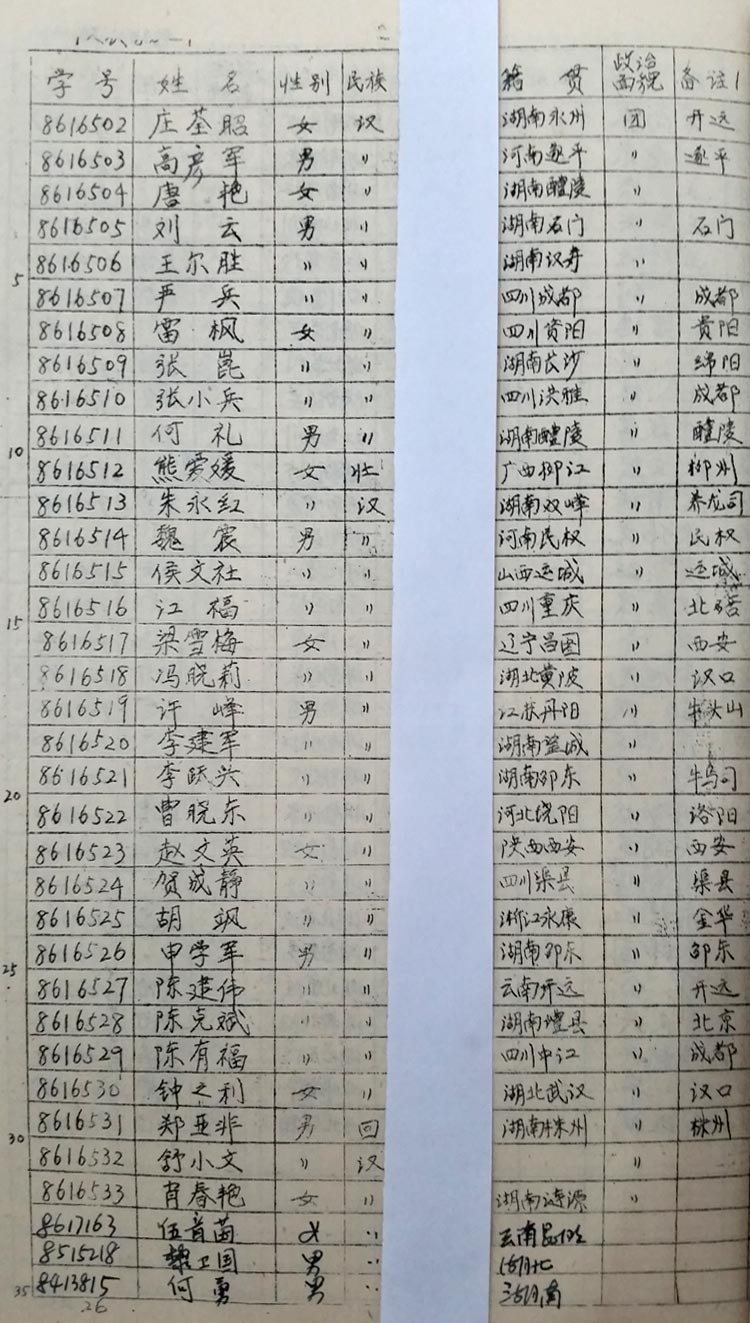 学号 姓名 性别 民族 籍贯 政治面貌 备注
8616502 庄荃昭 女 汉 湖南永州 团 开远
8616503 高彦军 男 〃 河南遂平 〃 遂平
8616504 唐艳 女 〃 湖南醴陵 〃
8616505 刘云 男 〃 湖南石门 〃 石门
5 8616506 王尔胜 〃 〃 湖南汉寿 〃
8616507 严兵 〃 〃 四川成都 〃 成都
8616508 雷枫 女 〃 四川资阳 〃 贵阳
8616509 张崑 〃 〃 湖南长沙 〃 绵阳
8616510 张小兵 〃 〃 四川洪雅 〃 成都
10 8616511 何礼 男 〃 湖南醴陵 〃 醴陵
8616512 熊爱媛 女 壮 广西柳江 〃 柳州
8616513 朱永红 〃 汉 湖南双峰 〃 养龙司
8616514 魏震 男 〃 河南民权 〃 民权
8616515 侯文社 〃 〃 山西运城 〃 运城
15 8616516 江福 〃 〃 四川重庆 〃 北碚
8616517 梁雪梅 女 〃 辽宁昌图 〃 西安
8616518 冯晓莉 〃 〃 湖北黄陂 〃 汉口
8616519 许峰 男 〃 江苏丹阳 〃 牛头山
8616520 李建军 〃 〃 湖南 〃
20 8616521 李跃兴 〃 〃 湖南邵东 〃 牛马司
8616522 曹晓东 〃 〃 河北饶阳 〃 洛阳
8616523 赵文英 女 〃 陕西西安 〃 西安
8616524 贺成静 〃 〃 四川渠县 〃 渠县
8616525 胡飒 〃 〃 浙江永康 〃 金华
25 8616526 申学军 男 〃 湖南邵东 〃 邵东
8616527 陈建伟 〃 〃 云南开远 〃 开远
8616528 陈克斌 〃 〃 湖南澧县 〃 北京
8616529 陈有福 〃 〃 四川中江 〃 成都
8616530 钟之利 女 〃 湖北武汉 〃 汉口
30 8616531 郑亚非 男 回 湖南株州 〃 株州
8616532 舒小文 〃 汉 〃
8616533 肖春艳 女 〃 湖南涟源 〃
8617163 伍首苗 女 〃 云南
8515218 魏卫国 男 〃 湖北
35 8413815 何勇 男 〃 湖南
26